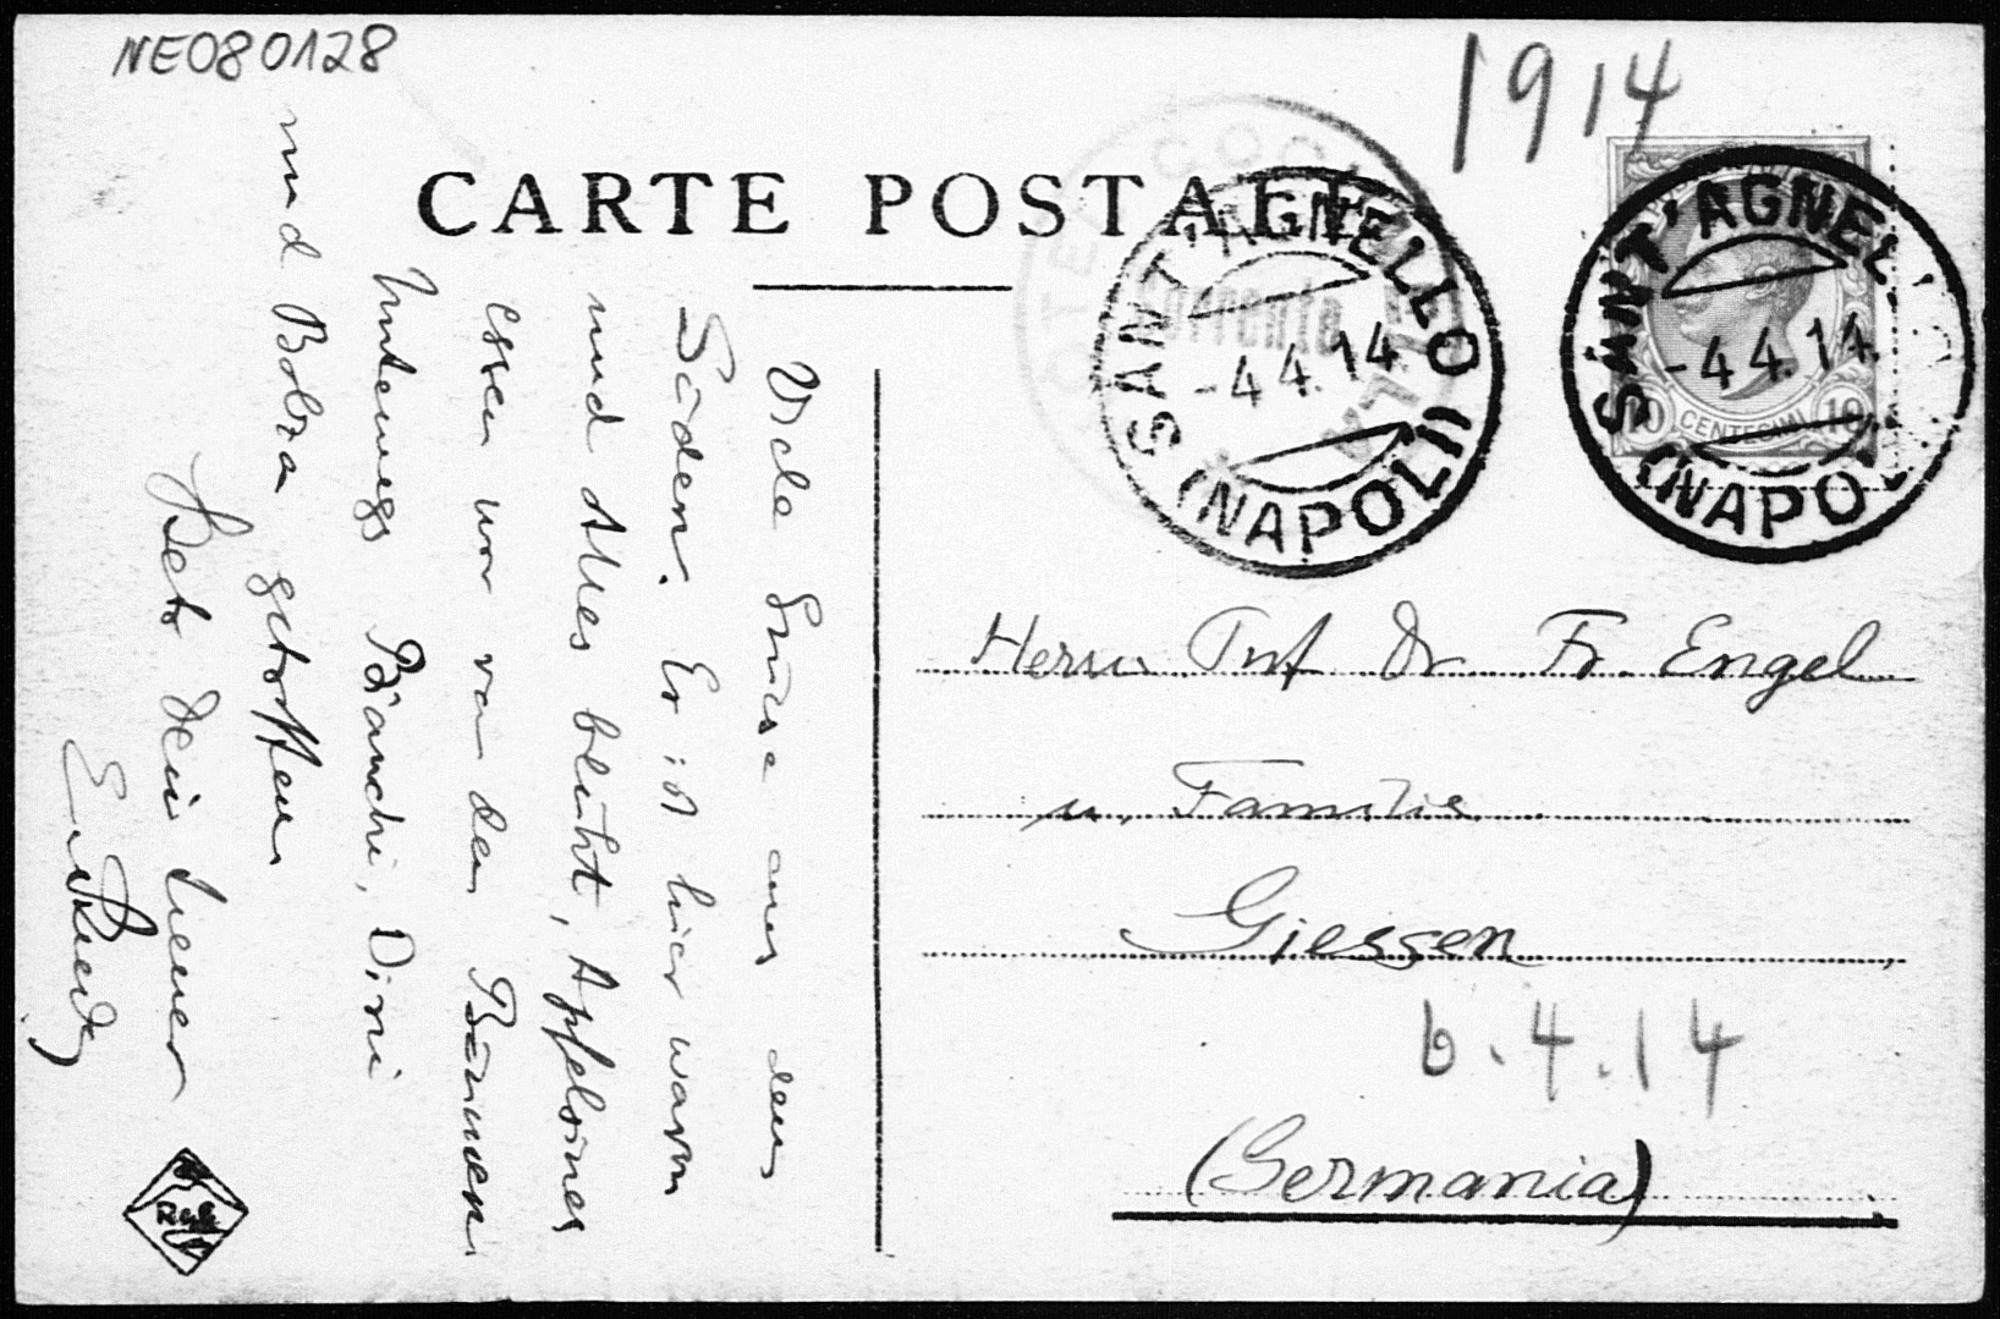 NE080128
1914
CARTE POSTALE
SANT'AGNELLO
-4 4.14
(NAPOLI)
SANT'AGNEL
-4 4.14
(NAPO
10 CENTESIMI 10
Sorrento
Viele Grüsse aus dem
Süden. Es ist hier warm
und Alles blüht, Apfelsinen
essen wir von den Bäumen.
Unterwegs Bianchi, Dini
und Bolza getroffen
Stets Dein treuer
Herrn Prof Dr Fr. Engel
u. Familie
Giessen
6.4.14
(Germania)